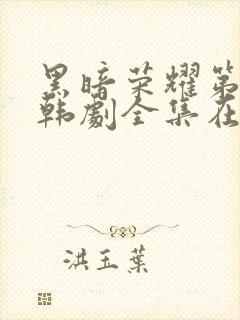 黑暗荣耀第
韩剧全集在
洪玉葉